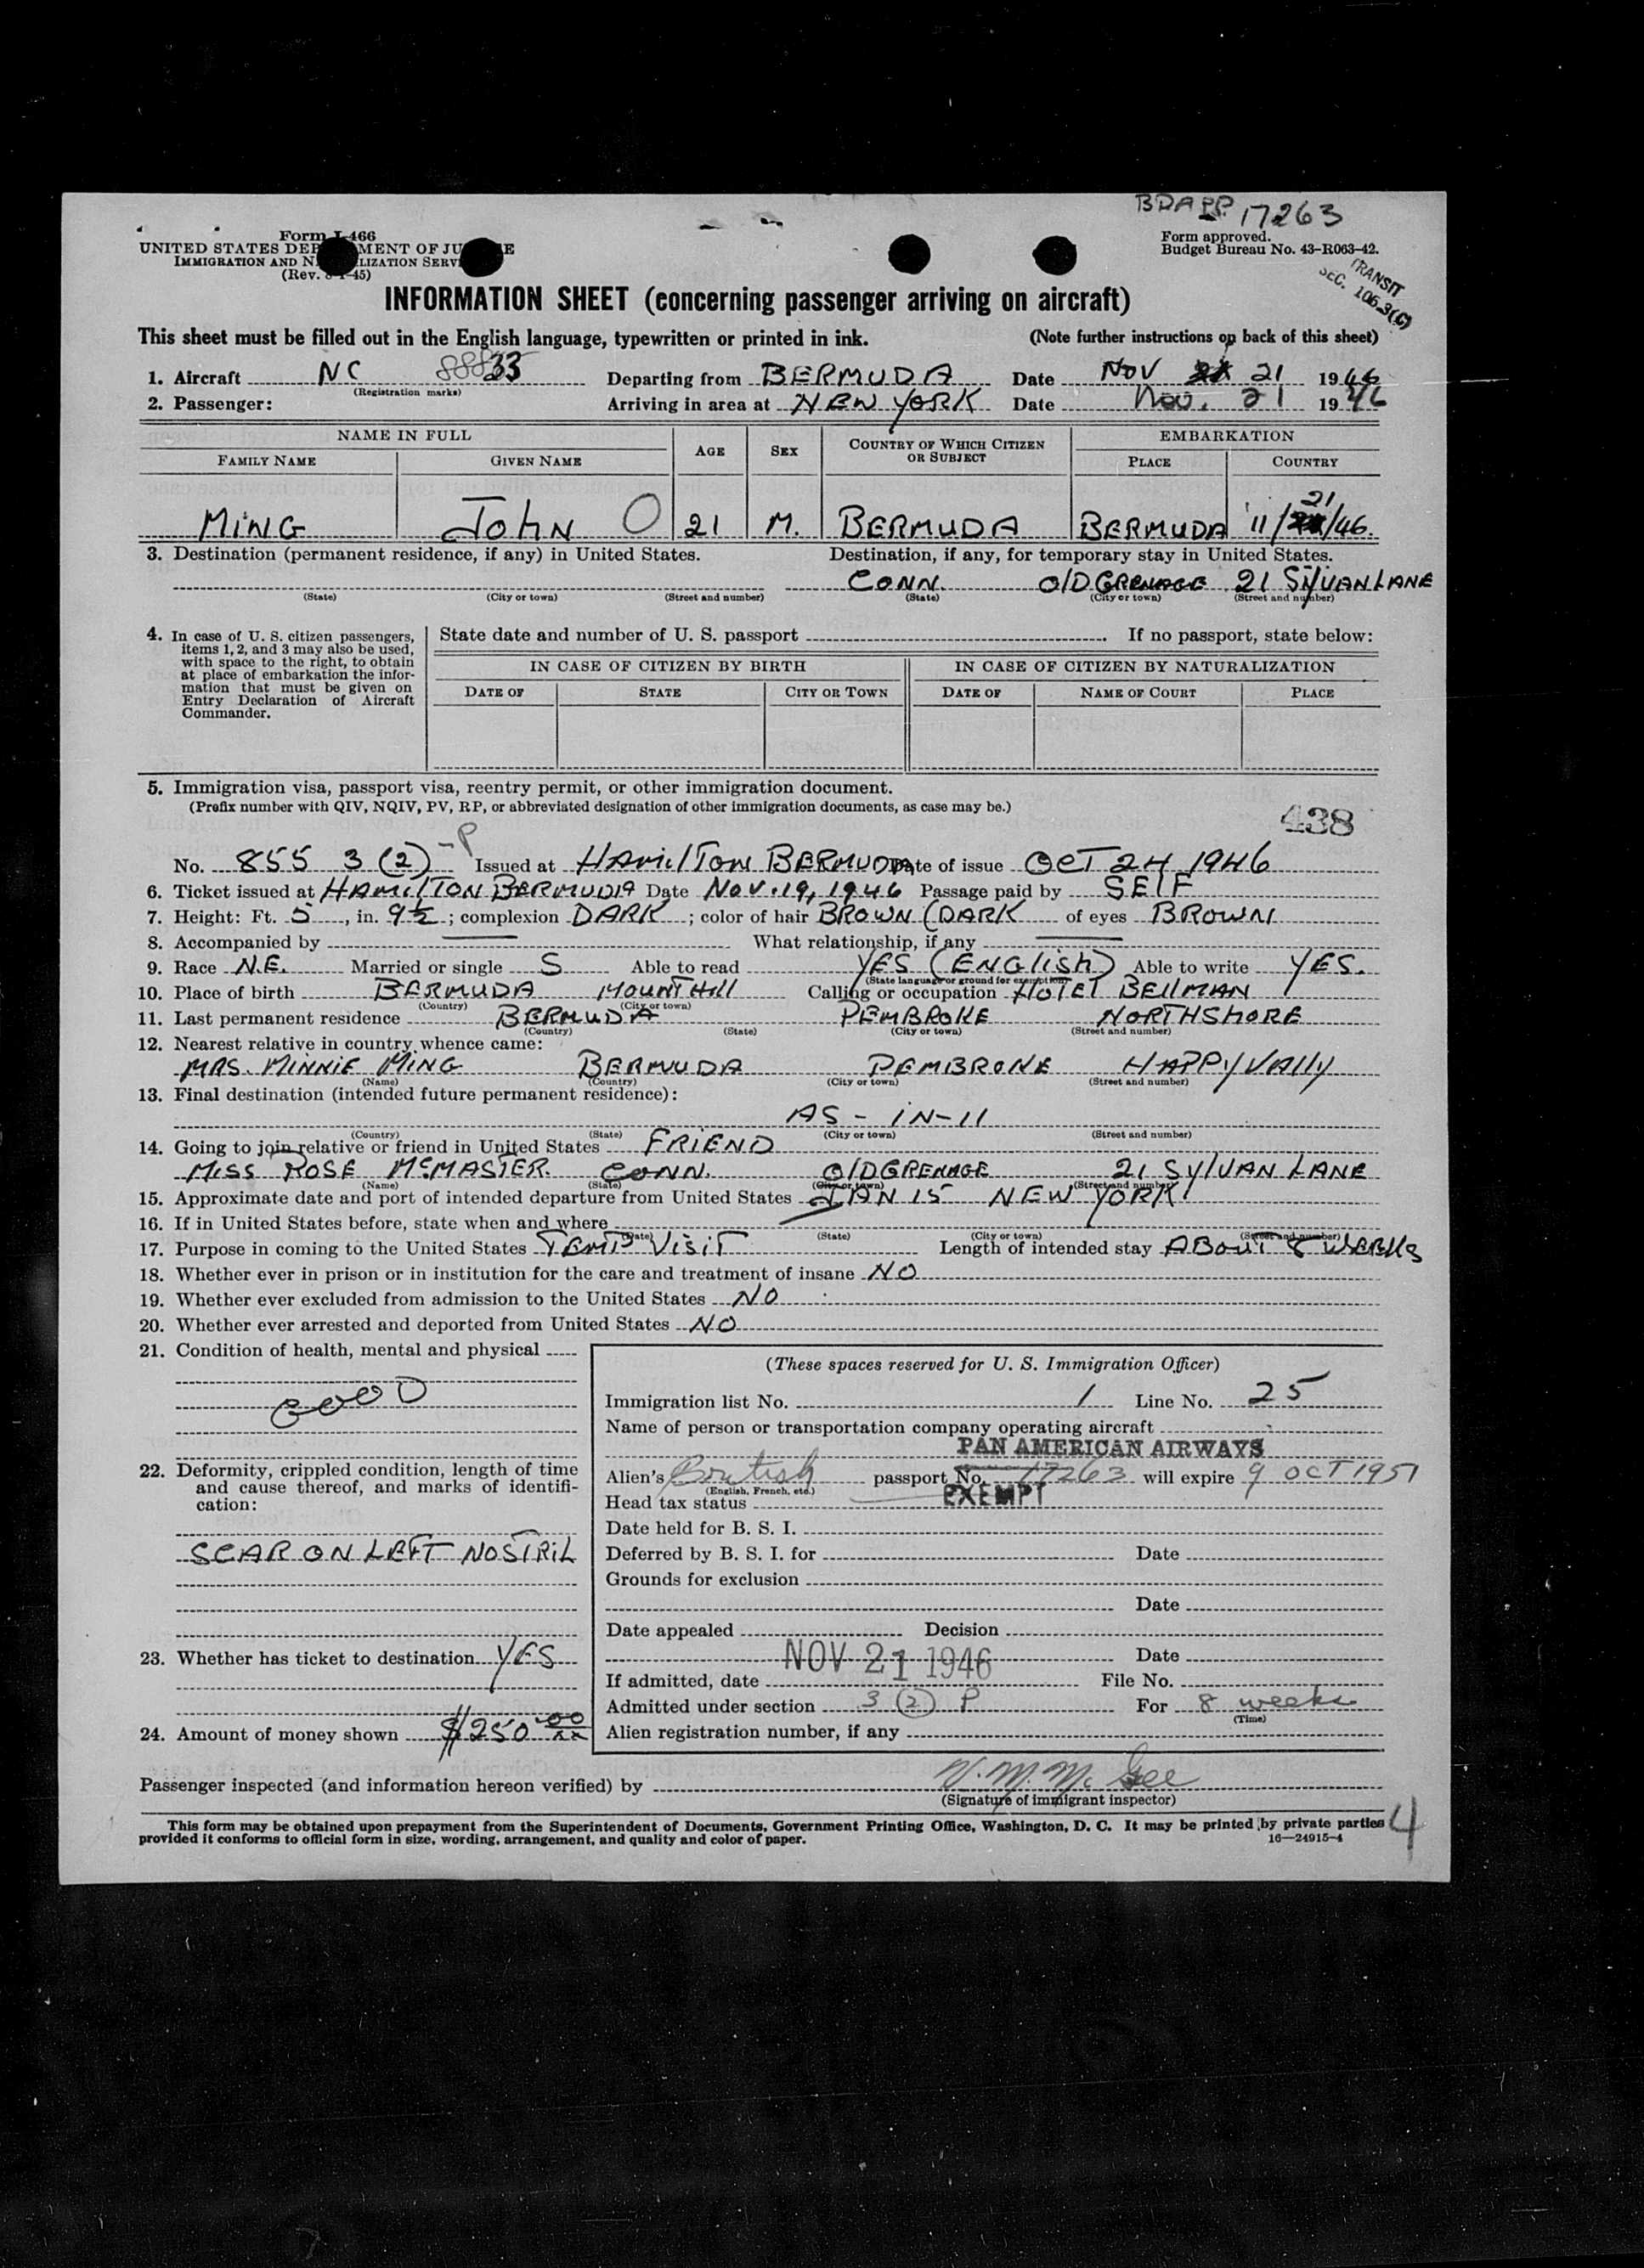 BDA PP. 17263
Form I-466
UNITED STATES DEP MENT OF JU E
IMMIGRATION AND N LIZATION SERV
(Rev. -45)
Form approved.
Budget Bureau No. 43-R063-42.
TRANSIT
SEC. 106.3(C)
INFORMATION SHEET (concerning passenger arriving on aircraft)
This sheet must be filled out in the English language, typewritten or printed in ink. (Note further instructions on back of this sheet)
1. Aircraft NC 88833 Departing from BERMUDA Date NOV 21 1946
(Registration marks)
2. Passenger: Arriving in area at NEW YORK Date Nov. 21 1946
NAME IN FULL AGE SEX COUNTRY OF WHICH CITIZEN OR SUBJECT EMBARKATION
FAMILY NAME GIVEN NAME PLACE COUNTRY
MING JOHN O 21 M. BERMUDA BERMUDA 11/21/46.
3. Destination (permanent residence, if any) in United States. Destination, if any, for temporary stay in United States.
CONN. OlD GRENAGE 21 SYlVAN LANE
(State) (City or town) (Street and number) (State) (City or town) (Street and number)
4. In case of U. S. citizen passengers, items 1, 2, and 3 may also be used, with space to the right, to obtain at place of embarkation the information that must be given on Entry Declaration of Aircraft Commander.
State date and number of U. S. passport . If no passport, state below:
IN CASE OF CITIZEN BY BIRTH IN CASE OF CITIZEN BY NATURALIZATION
DATE OF STATE CITY OR TOWN DATE OF NAME OF COURT PLACE
5. Immigration visa, passport visa, reentry permit, or other immigration document.
(Prefix number with QIV, NQIV, PV, RP, or abbreviated designation of other immigration documents, as case may be.)
438
No. 855 3 (2) -P Issued at HAMilTON BERMUDA Date of issue OCT 24 1946
6. Ticket issued at HAMilTON BERMUDA Date NOV. 19, 1946 Passage paid by SElF
7. Height: Ft. 5, in. 9½; complexion DARK; color of hair BROWN (DARK of eyes BROWN
8. Accompanied by — What relationship, if any —
9. Race N.E. Married or single S Able to read YES (ENGlish) Able to write YES.
(State language or ground for exemption)
10. Place of birth BERMUDA MOUNT Hill Calling or occupation HOTEl BEllMAN
(Country) (City or town)
11. Last permanent residence BERMUDA PEMBROKE NORTHSHORE
(Country) (State) (City or town) (Street and number)
12. Nearest relative in country whence came:
MRS. MINNIE MING BERMUDA PEMBROKE HAPPY VAllY
(Name) (Country) (City or town) (Street and number)
13. Final destination (intended future permanent residence):
AS - IN - 11
(Country) (State) (City or town) (Street and number)
14. Going to join relative or friend in United States FRIEND
MISS ROSE McMASTER. CONN. OlD GRENAGE 21 SylVAN LANE
(Name) (State) (City or town) (Street and number)
15. Approximate date and port of intended departure from United States JAN 15 NEW YORK
16. If in United States before, state when and where
(Date) (State) (City or town) (Street and number)
17. Purpose in coming to the United States TEMP VISIT Length of intended stay ABOUT 8 WEEKS
18. Whether ever in prison or in institution for the care and treatment of insane NO
19. Whether ever excluded from admission to the United States NO
20. Whether ever arrested and deported from United States NO
21. Condition of health, mental and physical
GOOD
22. Deformity, crippled condition, length of time and cause thereof, and marks of identification:
SCAR ON LEFT NOSTRIL
23. Whether has ticket to destination YES
24. Amount of money shown $250 00/xx
(These spaces reserved for U. S. Immigration Officer)
Immigration list No. 1 Line No. 25
Name of person or transportation company operating aircraft
PAN AMERICAN AIRWAYS
Alien's British passport No. 17263 will expire 9 OCT 1951
(English, French, etc.)
Head tax status EXEMPT
Date held for B. S. I.
Deferred by B. S. I. for Date
Grounds for exclusion
Date
Date appealed Decision
NOV 21 1946 Date
If admitted, date File No.
Admitted under section 3 (2) P For 8 weeks
(Time)
Alien registration number, if any
Passenger inspected (and information hereon verified) by V. M. Mc Gee
(Signature of immigrant inspector)
This form may be obtained upon prepayment from the Superintendent of Documents, Government Printing Office, Washington, D. C. It may be printed by private parties
provided it conforms to official form in size, wording, arrangement, and quality and color of paper. 16—24915-4
4